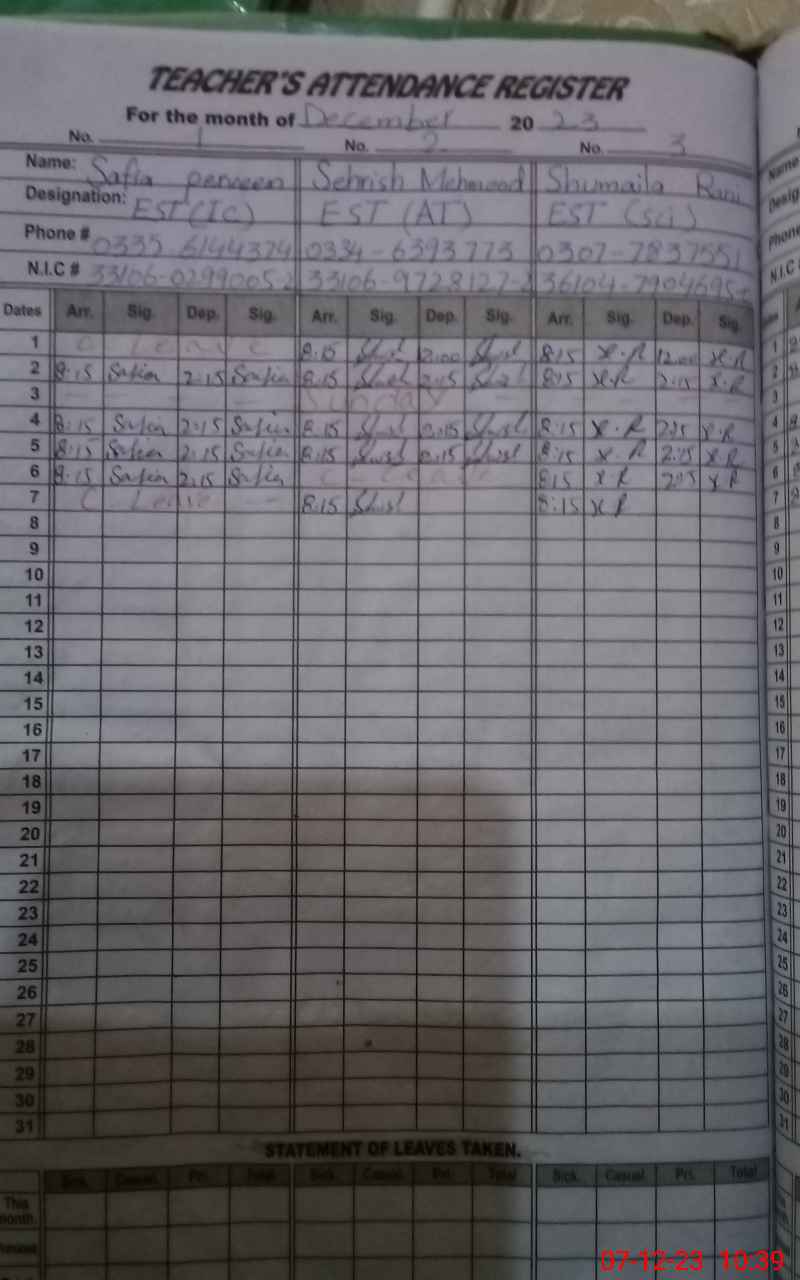 TEACHER'S ATTENDANCE REGISTER
For the month of December 20 23
No. 1 No. 2 No. 3
Name: Safia perveen Sehrish Mehmood Shumaila Rani
Designation: EST (IC) EST (AT) EST (sci)
Phone # 0335 6144374 0334-6393773 0307-7837551
N.I.C # 33106-0299005 33106-9728127- 36104-7904695
Dates Arr. Sig. Dep. Sig. Arr. Sig. Dep. Sig. Arr. Sig. Dep. Sig.
1 C Leave 8:15 12:00 8:15 12:00
2 8:15 Safia 2:15 Safia 8:15 2:15 8:15 2:15
3 Sunday
4 8:15 Safia 2:15 Safia 8:15 2:15 8:15 2:15
5 8:15 Safia 2:15 Safia 8:15 2:15 8:15 2:15
6 8:15 Safia 2:15 Safia C Leave 8:15 2:15
7 C Leave 8:15 8:15
8
9
10
11
12
13
14
15
16
17
18
19
20
21
22
23
24
25
26
27
28
29
30
31
STATEMENT OF LEAVES TAKEN.
Sick. Casual. Pri. Total Sick. Casual. Pri. Total Sick. Casual. Pri. Total
This
month.
07-12-23 10:39